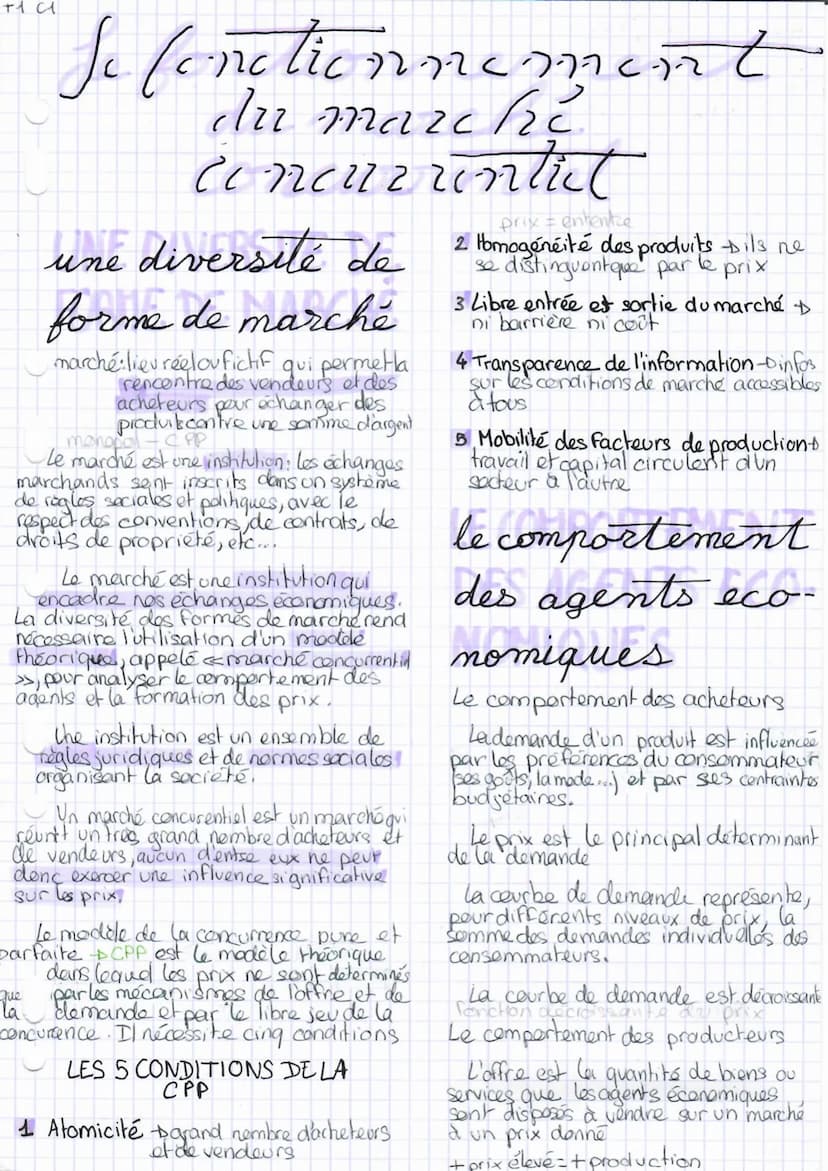 T1 C1
Le fonctionnement
du marché
concurrentiel
une diversité de
forme de marché
marché: lieu réel ou fictif qui permet la
rencontre des vendeurs et des
acheteurs pour échanger des
produits contre une somme d'argent
monopol - CPP
Le marché est une institution: les échanges
marchands sont inscrits dans un système
de règles sociales et politiques, avec le
respect des conventions, de contrats, de
droits de propriété, etc...
Le marché est une institution qui
encadre nos échanges économiques.
La diversité des formes de marché rend
nécessaire l'utilisation d'un modèle
théorique, appelé « marché concurrentiel
», pour analyser le comportement des
agents et la formation des prix.
Une institution est un ensemble de
règles juridiques et de normes sociales
organisant la société.
Un marché concurentiel est un marché qui
réunit un très grand nombre d'acheteurs et
de vendeurs, aucun d'entre eux ne peut
donc exercer une influence significative
sur les prix.
Le modèle de la concurrence pure et
parfaite → CPP est le modèle théorique
dans lequel les prix ne sont déterminés
que par les mécanismes de l'offre et de
la demande et par le libre jeu de la
concurence. Il nécessite cinq conditions
LES 5 CONDITIONS DE LA
CPP
1 Atomicité → grand nombre d'acheteurs
et de vendeurs
prix = entente
2 Homogénéité des produits → ils ne
se distinguent que par le prix
3 Libre entrée et sortie du marché →
ni barrière ni coût
4 Transparence de l'information → infos
sur les conditions de marché accessibles
à tous
5 Mobilité des facteurs de production →
travail et capital circulent d'un
secteur à l'autre
le comportement
des agents eco-
nomiques
Le comportement des acheteurs
La demande d'un produit est influencée
par les préférences du consommateur
(ses goûts, la mode...) et par ses contraintes
budgétaires.
Le prix est le principal déterminant
de la demande
La courbe de demande représente,
pour différents niveaux de prix, la
somme des demandes individuelles des
consommateurs.
La courbe de demande est décroissante
fonction décroissante du prix
Le comportement des producteurs
L'offre est la quantité de biens ou
services que les agents économiques
sont disposés à vendre sur un marché
à un prix donné
+ prix élevé = + production